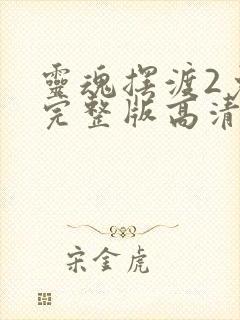 靈魂摆渡2
完整版高清
宋金虎